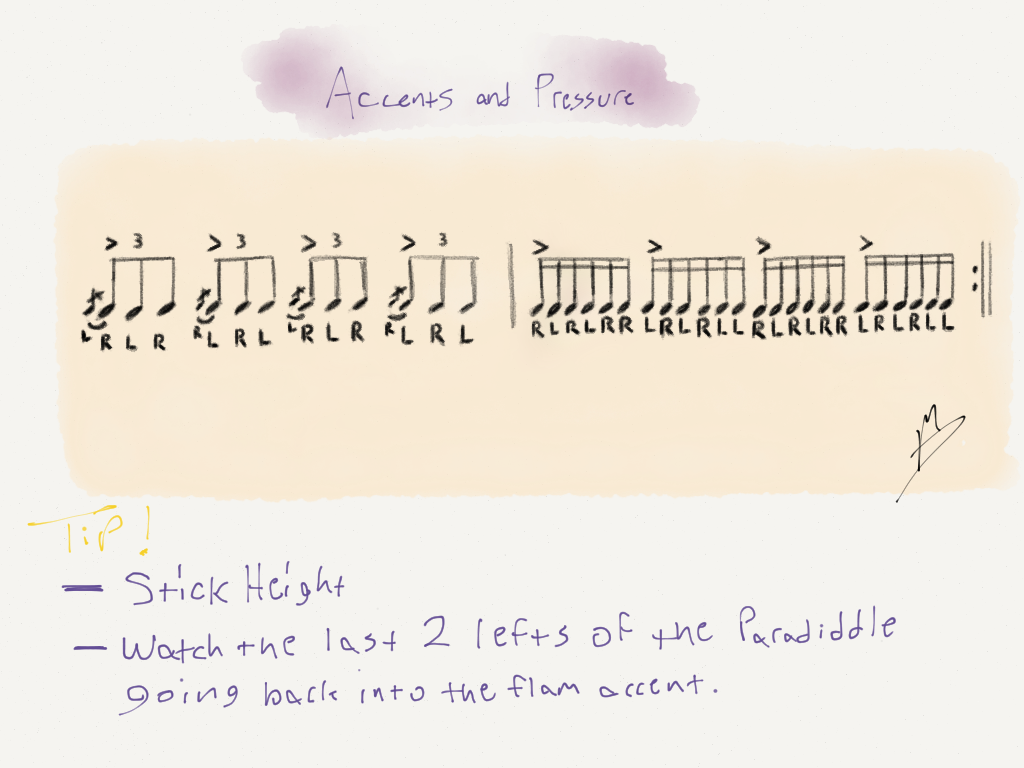 Accents and Pressure
> 3 > 3 > 3 > 3 > > > >
L R L R R L R L L R L R R L R L R L R L R R L R L R L L R L R L R R L R L R L L
Tip!
— Stick Height
— Watch the last 2 lefts of the Paradiddle
going back into the flam accent.